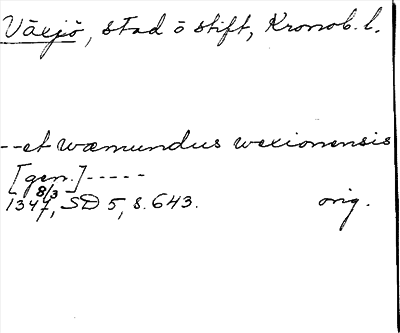 Växjö, stad ö stift, Kronob. l.
--et wæmundus wexionensis
[gen.]-----
8/3
1347, SD 5, s. 643. orig.